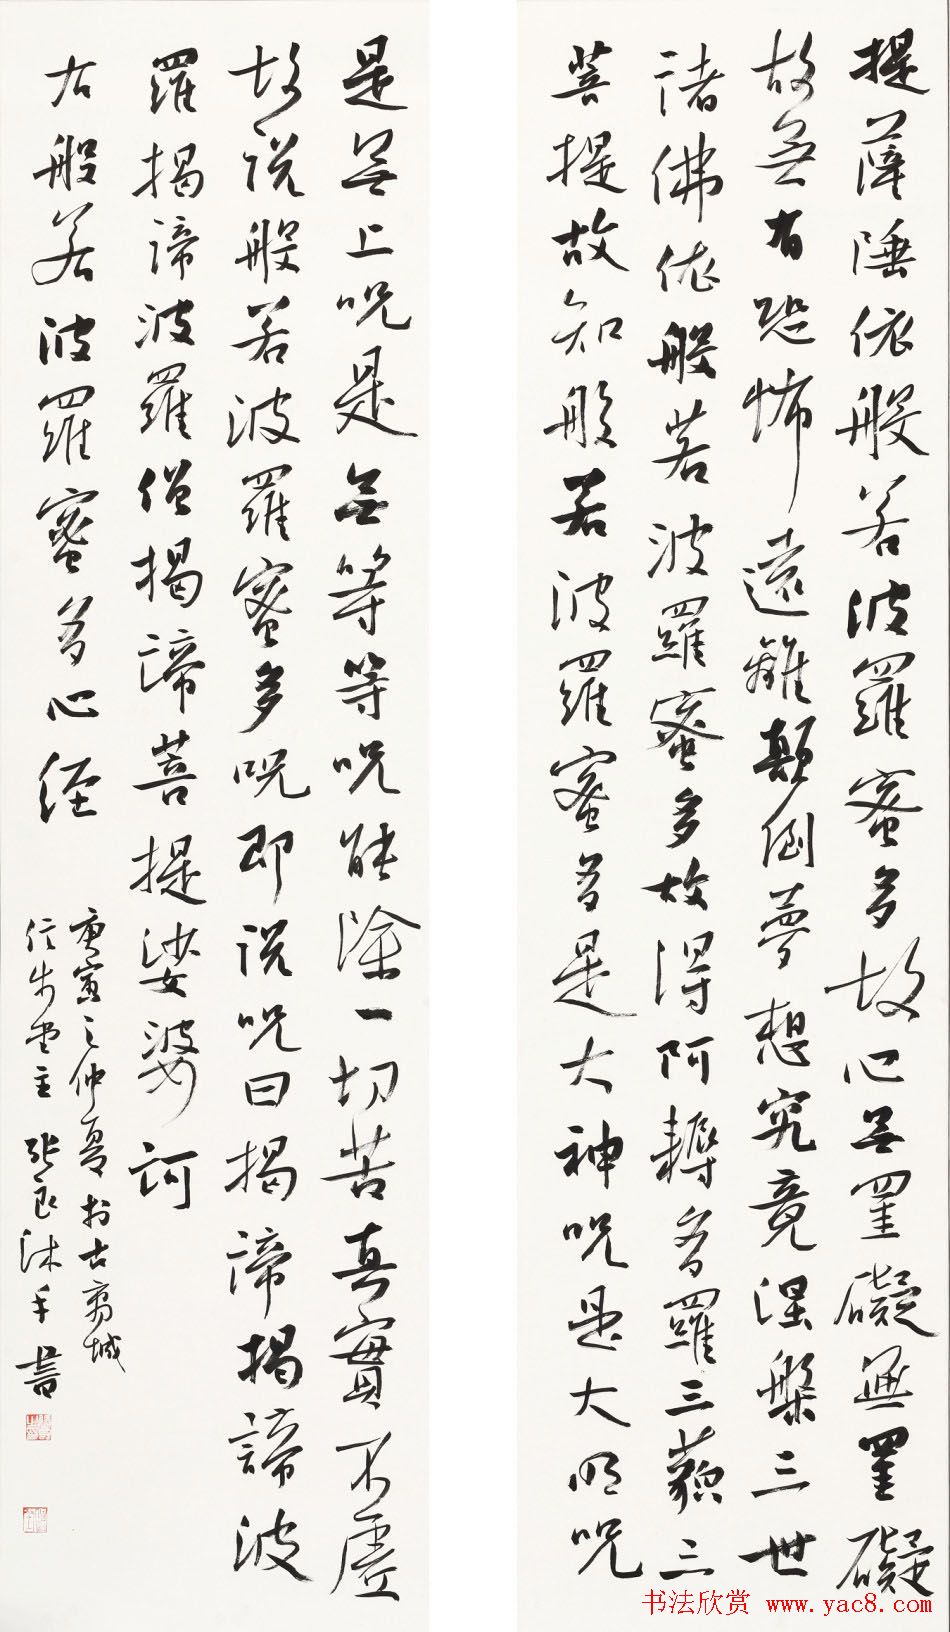 提薩埵依般若波羅蜜多故心無罣礙無罣礙
故無有恐怖遠離顛倒夢想究竟涅槃三世
諸佛依般若波羅蜜多故得阿耨多羅三藐三
菩提故知般若波羅蜜多是大神呪是大明呪
是無上呪是無等等呪能除一切苦真實不虛
故說般若波羅蜜多呪即說呪曰揭諦揭諦波
羅揭諦波羅僧揭諦菩提娑婆訶
右般若波羅蜜多心經
庚寅之仲夏於古城
信堂主張良沐手書
书法欣赏 www.yac8.com